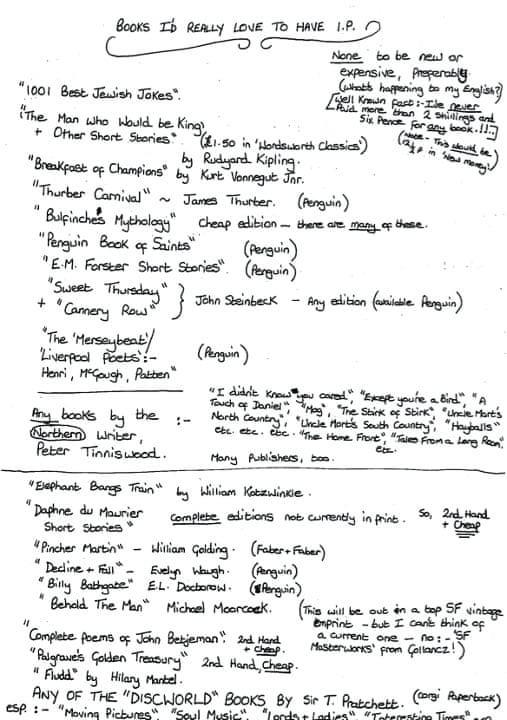 BOOKS I'D REALLY LOVE TO HAVE I.P.
None to be new or
expensive, preperably
(what's happening to my English?)
[Well Known Fact:- I've never
Paid more than 2 Shillings and
Six Pence for any book.!!..]
(Note - This would be
12½ P in 'New money')
"1001 Best Jewish Jokes".
"The Man Who Would be King'
+ Other Short Stories." (£1.50 in 'Wordsworth Classics')
by Rudyard Kipling.
"Breakfast of Champions" by Kurt Vonnegut Jnr.
"Thurber Carnival" ~ James Thurber. (Penguin)
"Bulfinche's Mythology" Cheap edition - there are many of these.
"Penguin Book of Saints" (Penguin)
"E.M. Forster Short Stories". (Penguin)
"Sweet Thursday"
+ "Cannery Row" } John Steinbeck - Any edition (available Penguin)
"The 'Merseybeat'/
'Liverpool Poets':- (Penguin)
Henri, McGough, Patten"
Any books by the :-
Northern Writer,
Peter Tinniswood.
"I didn't Know you cared", "Except you're a Bird", "A
Touch of Daniel", "Mog", "The Stink of Stirk", "Uncle Mort's
North Country", "Uncle Mort's South Country", "Hayballs"
etc. etc. etc. "The Home Front", "Tales From a Long Room",
etc.
Many Publishers, too.
"Elephant Bangs Train" by William Kotzwinkle.
"Daphne du Maurier
Short Stories" Complete editions not currently in print. So, 2nd Hand
+ Cheap
"Pincher Martin" - William Golding. (Faber + Faber)
"Decline + Fall" - Evelyn Waugh. (Penguin)
"Billy Bathgate" E.L. Doctorow. (Penguin)
"Behold The Man" Michael Moorcock. (This will be out in a top SF vintage
imprint - but I can't think of
a current one - no:- 'SF
Masterworks' from Gollancz!)
"Complete Poems of John Betjeman" 2nd Hand
+ Cheap.
"Palgrave's Golden Treasury" 2nd Hand, Cheap.
"Fludd" by Hilary Mantel.
ANY OF THE "DISCWORLD" BOOKS BY Sir T. Pratchett. (Corgi Paperback)
esp. :- "Moving Pictures", "Soul Music", "Lords + Ladies", "Interesting Times"